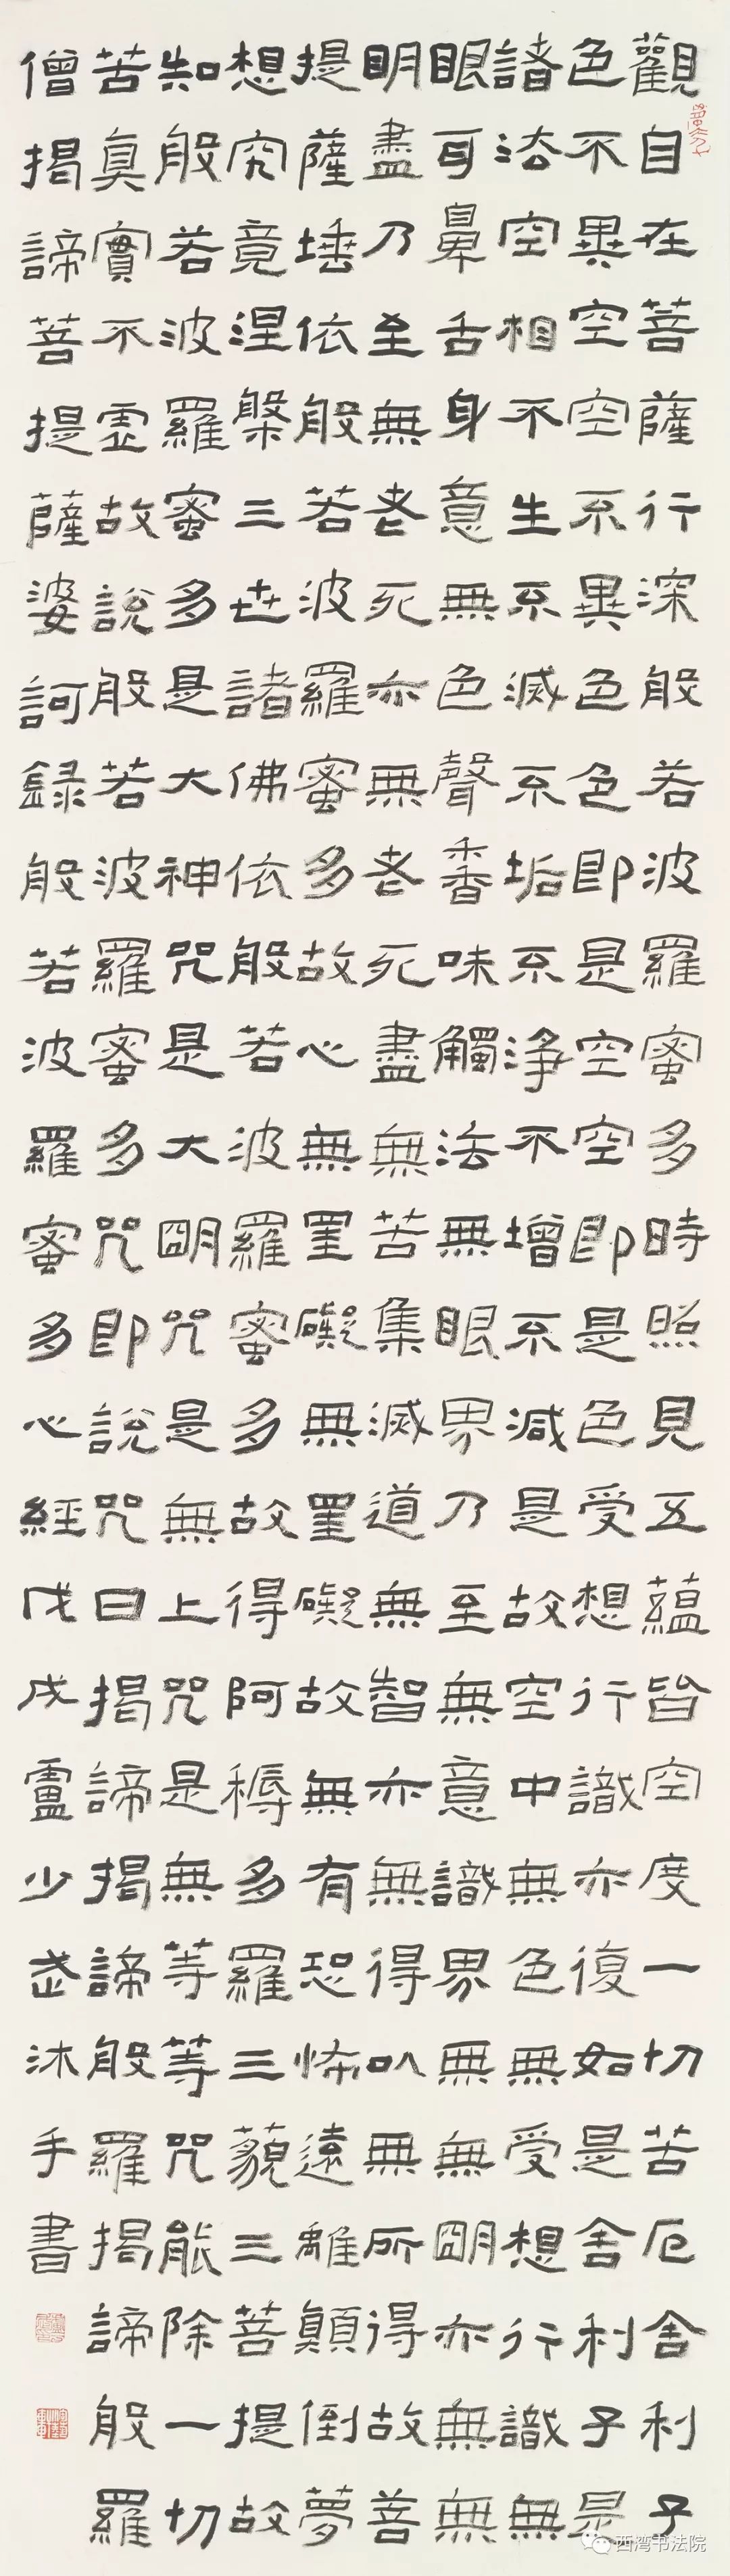 觀自在菩薩行深般若波羅蜜多時照見五蘊皆空度一切苦厄舍利子
色不異空空不異色色即是空空即是色受想行識亦復如是舍利子是
諸法空相不生不滅不垢不淨不增不減是故空中無色無受想行識無
眼耳鼻舌身意無色聲香味觸法無眼界乃至無意識界無無明亦無無
明盡乃至無老死亦無老死盡無苦集滅道無智亦無得以無所得故菩
提薩埵依般若波羅蜜多故心無罣礙無罣礙故無有恐怖遠離顛倒夢
想究竟涅槃三世諸佛依般若波羅蜜多故得阿耨多羅三藐三菩提故
知般若波羅蜜多是大神咒是大明咒是無上咒是無等等咒能除一切
苦真實不虛故說般若波羅蜜多咒即說咒曰揭諦揭諦般羅揭諦般羅
僧揭諦菩提薩婆訶錄般若波羅蜜多心經戊戌盧少武沐手書
西湾书法院